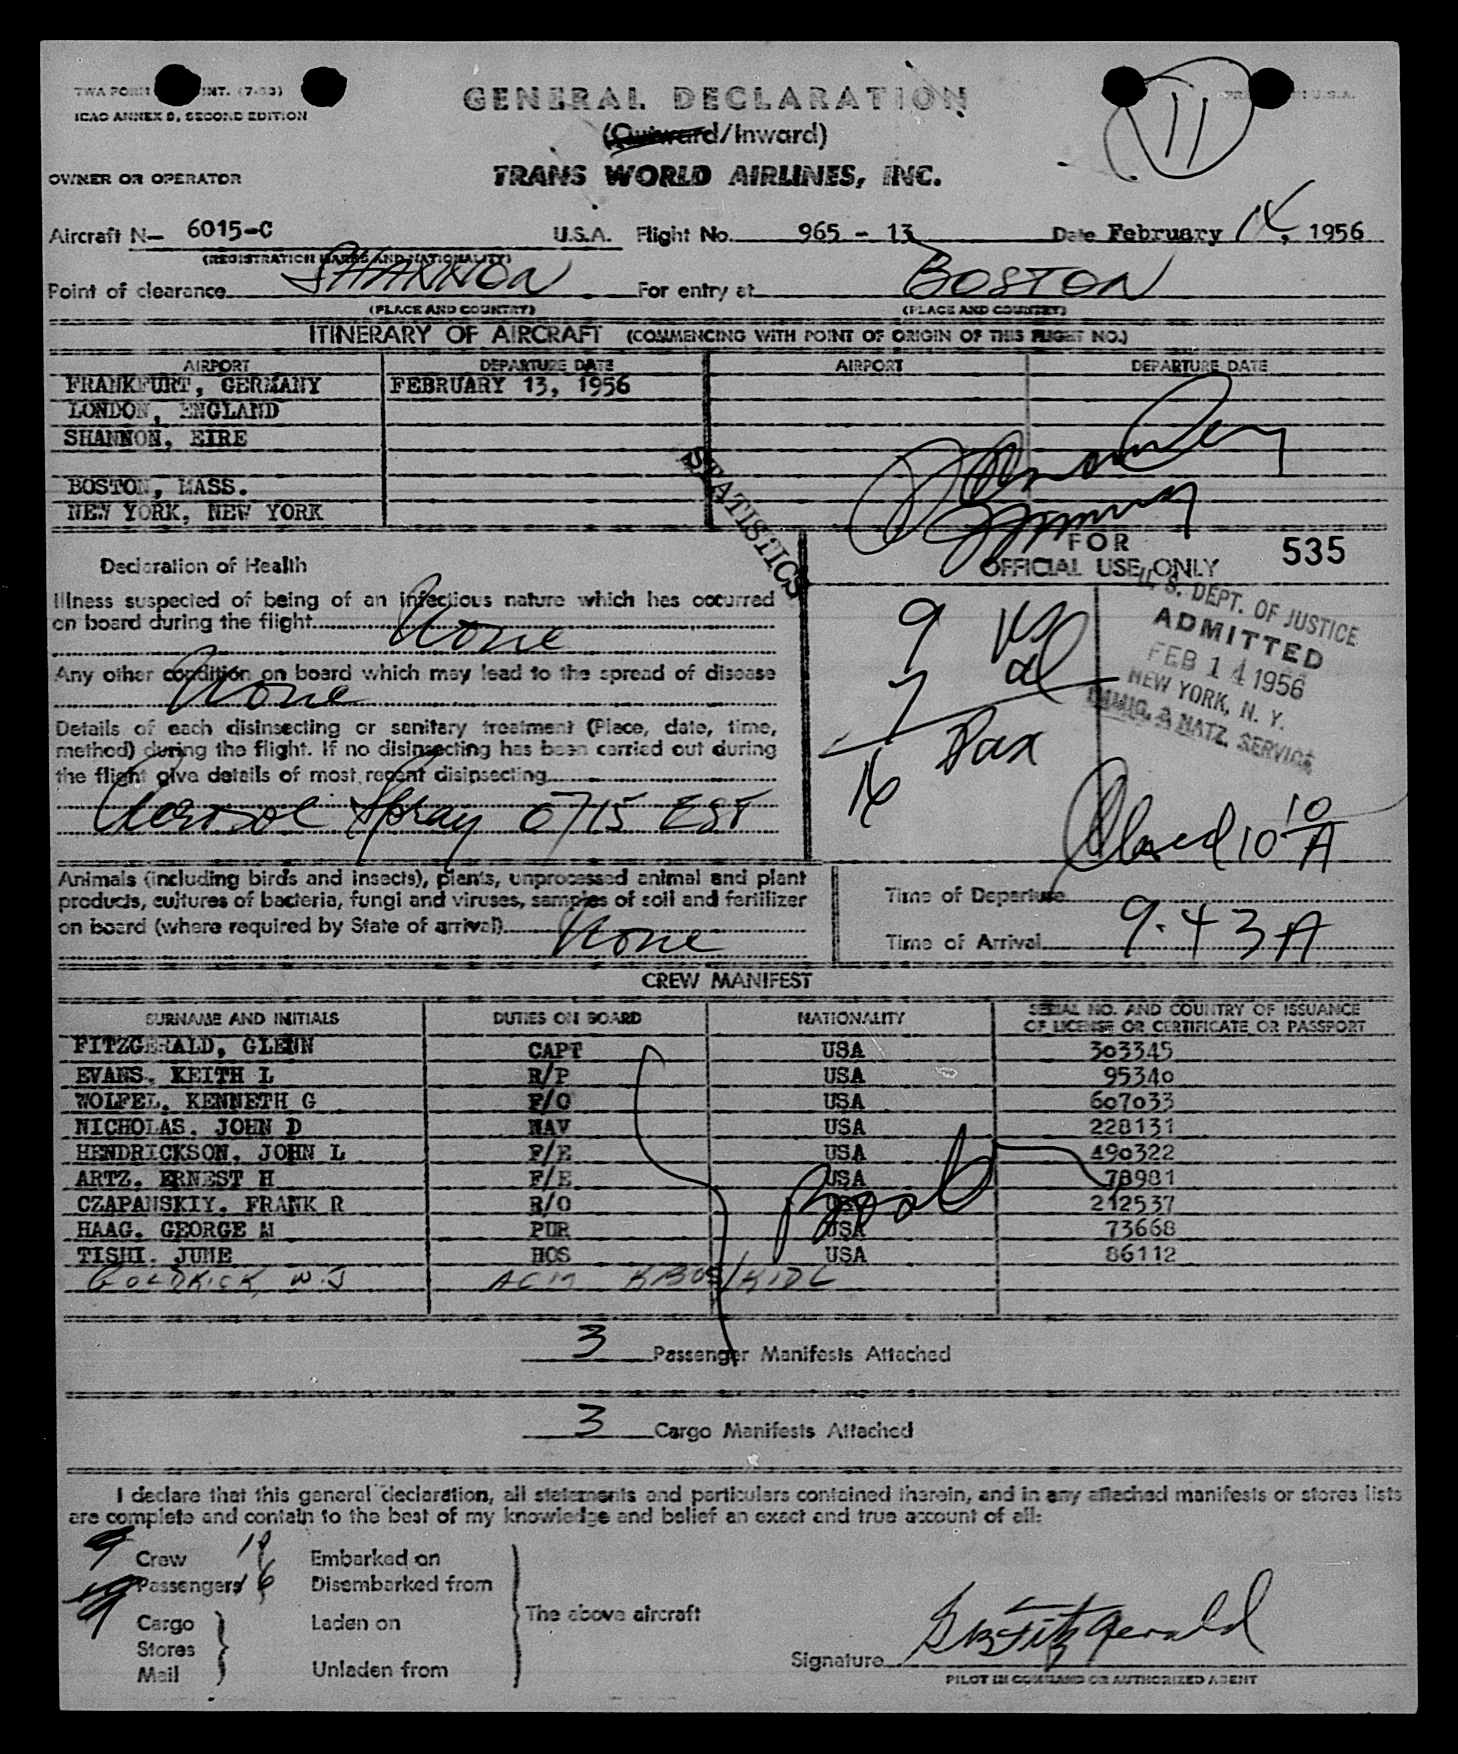 TWA FORM INT. (7-53)
ICAO ANNEX 9, SECOND EDITION
11
GENERAL DECLARATION
(Outward/Inward)
OWNER OR OPERATOR
TRANS WORLD AIRLINES, INC.
Aircraft N— 6015-C U.S.A. Flight No. 965 - 13 Date February 14, 1956
(REGISTRATION MARKS AND NATIONALITY)
Point of clearance SHANNON For entry at BOSTON
(PLACE AND COUNTRY) (PLACE AND COUNTRY)
ITINERARY OF AIRCRAFT (COMMENCING WITH POINT OF ORIGIN OF THIS FLIGHT NO.)
AIRPORT DEPARTURE DATE AIRPORT DEPARTURE DATE
FRANKFURT, GERMANY FEBRUARY 13, 1956
LONDON, ENGLAND
SHANNON, EIRE
BOSTON, MASS.
NEW YORK, NEW YORK
STATISTICS
FOR
OFFICIAL USE ONLY 535
Declaration of Health
Illness suspected of being of an infectious nature which has occurred
on board during the flight None
Any other condition on board which may lead to the spread of disease
None
Details of each disinsecting or sanitary treatment (Place, date, time,
method) during the flight. If no disinsecting has been carried out during
the flight give details of most recent disinsecting
Aerosol Spray 0715 EST
9 US
7 al
16 Pax
U. S. DEPT. OF JUSTICE
ADMITTED
FEB 14 1956
NEW YORK, N. Y.
IMMIG. & NATZ. SERVICE
Closed 10 10/A
Animals (including birds and insects), plants, unprocessed animal and plant
products, cultures of bacteria, fungi and viruses, samples of soil and fertilizer
on board (where required by State of arrival) None
Time of Departure
Time of Arrival 9.43A
CREW MANIFEST
SURNAME AND INITIALS DUTIES ON BOARD NATIONALITY SERIAL NO. AND COUNTRY OF ISSUANCE
OF LICENSE OR CERTIFICATE OR PASSPORT
FITZGERALD, GLENN CAPT USA 303345
EVANS, KEITH L R/P USA 95340
WOLFEL, KENNETH G F/O USA 607033
NICHOLAS, JOHN D NAV USA 228131
HENDRICKSON, JOHN L F/E USA 490322
ARTZ, ERNEST H F/E USA 78981
CZAPANSKIY, FRANK R R/O USA 212537
HAAG, GEORGE M PUR USA 73668
TISHI, JUNE HOS USA 86112
GOLDRICK, W.J ACM KBOS/KIDL
3 Passenger Manifests Attached
3 Cargo Manifests Attached
I declare that this general declaration, all statements and particulars contained therein, and in any attached manifests or stores lists
are complete and contain to the best of my knowledge and belief an exact and true account of all:
9 Crew Embarked on
Passengers 16 Disembarked from
Cargo Laden on
The above aircraft
Stores
Mail Unladen from
Signature Fitzgerald
PILOT IN COMMAND OR AUTHORIZED AGENT